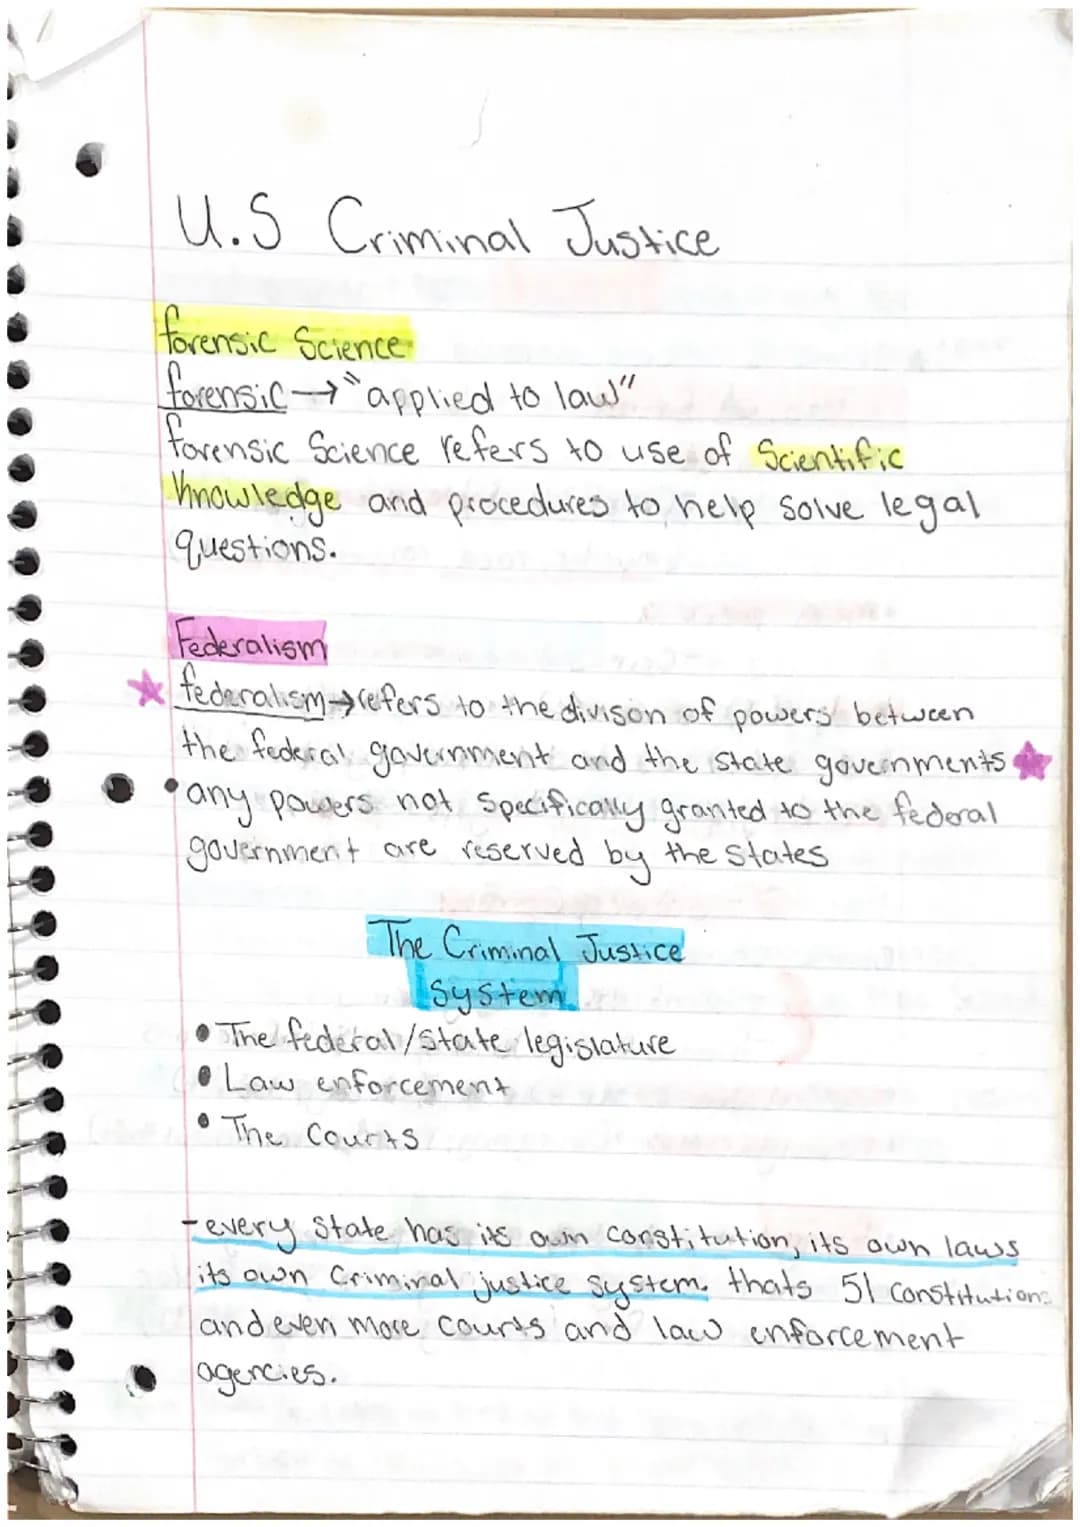 U.S Criminal Justice
forensic Science
forensic → "applied to law"
forensic Science refers to use of Scientific
knowledge and procedures to help solve legal
questions.
Federalism
federalism → refers to the divison of powers between
the federal government and the state governments
• any powers not specifically granted to the federal
government are reserved by the States
The Criminal Justice
System
• The federal/state legislature
• Law enforcement
• The Courts
- every state has its own constitution, its own laws
its own Criminal justice system. thats 51 constitutions
and even more courts and law enforcement
agencies.